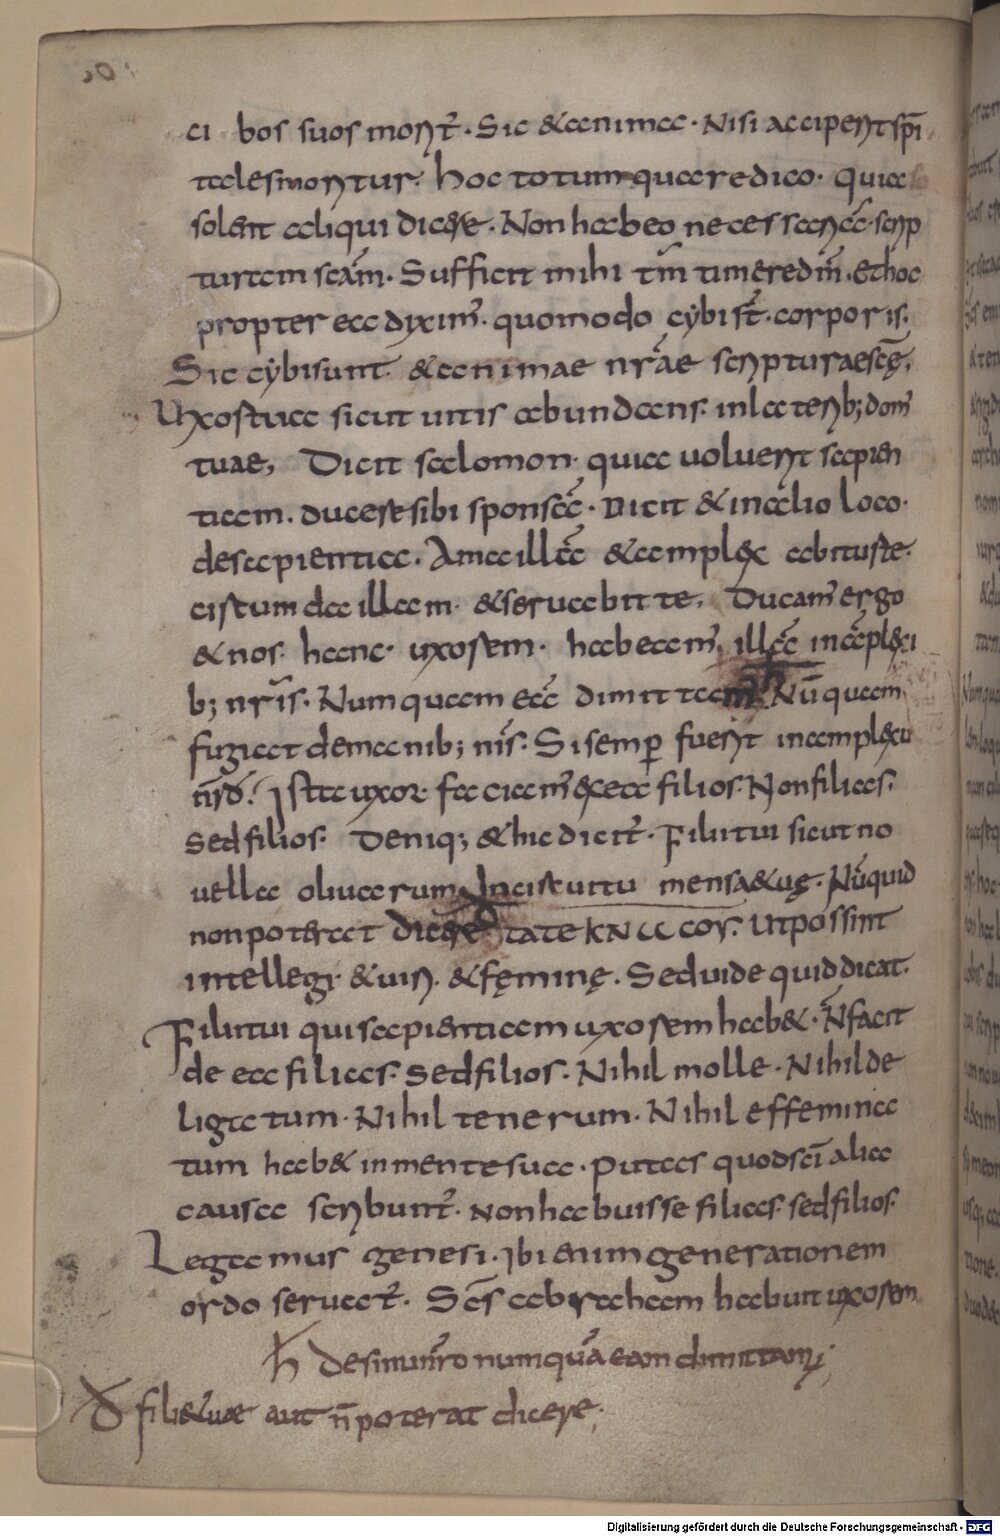 ci bos suos morit̄. Sic & anima. Nisi acciperit spi̅
talesmoritur. Hoc totum quare dico. quia
solent aliqui dicere. Non habeo necessaria̅. scrip
turam sca̅m. Sufficit mihi tm̅ timere dm̅. et hoc
propter ea diximꝰ. quomodo cybi st̅. corporis.
Sic cybi sunt. & animae nr̅ae scripturaescę.
Uxor tua sicut uitis abundans. in laterib; domꝰ
tuae, Dicit salomon. quia uoluerit sapien
tiam. ducere sibi sponsa̅. Dicit & in alio loco.
de sapientia. Ama illa̅ & amplex abit te.
circumda illam. & seruabit te. Ducamꝰ ergo
& nos. hanc. uxorem. habeamꝰ illa̅ in a̅plexi
b; nr̅is. Numquam ea̅ dimittam. Nu̅quam
fugiat de manib; nr̅is. Si semp̲ fuerit in amplexu
nr̅o. Ista uxor faciamꝰ ex ea filios. Non filias.
Sed filios. Deniq; & hic dicit̄. Filii tui sicut no
uella oliuarum. In circuitu mensae tuę. Nu̅quid
non poterat dicere TATEKNA COY. Ut possint
intellegi. & uiri. & feminę. Sed uide quid dicat.
Filii tui qui sapientiam uxorem hab&. N̅ facit
de ea filias. Sed filios. Nihil molle. Nihil de
ligatum. Nihil tenerum. Nihil effemina
tum hab& in mente sua. Putas quod sci̅ alia
causa scribunt̄. Non habuisse filias. sed filios.
Legamus genesi. Ibi enim generationem
ordo seruat̄. Sc̅s abraham habuit uxorem
numqua̅ eam dimittam;
fili&uae aut n̅ poterat dicere;
Digitalisierung gefördert durch die Deutsche Forschungsgemeinschaft - DFG